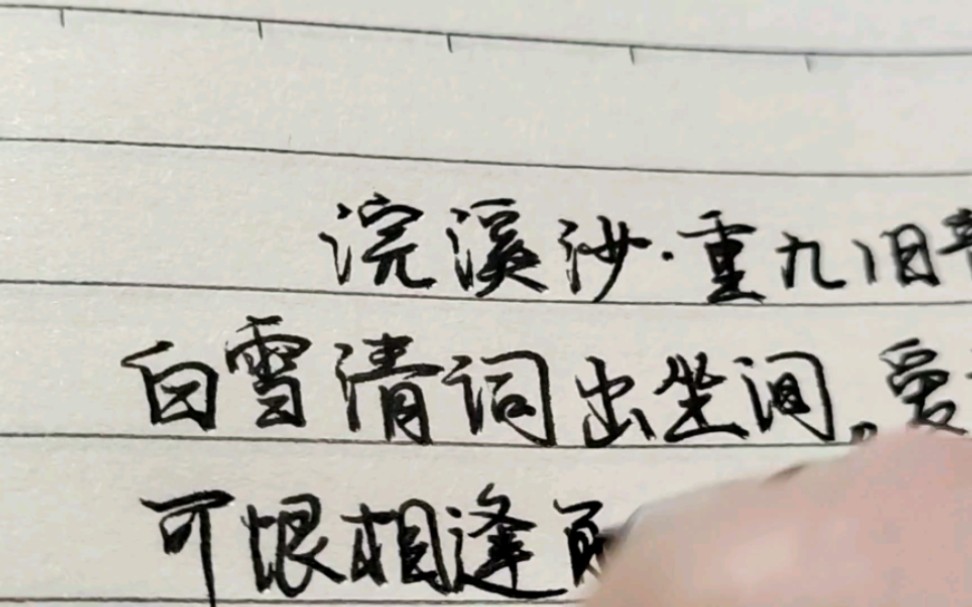 浣溪沙·重九旧
白雪清词出坐间。爱
可恨相逢